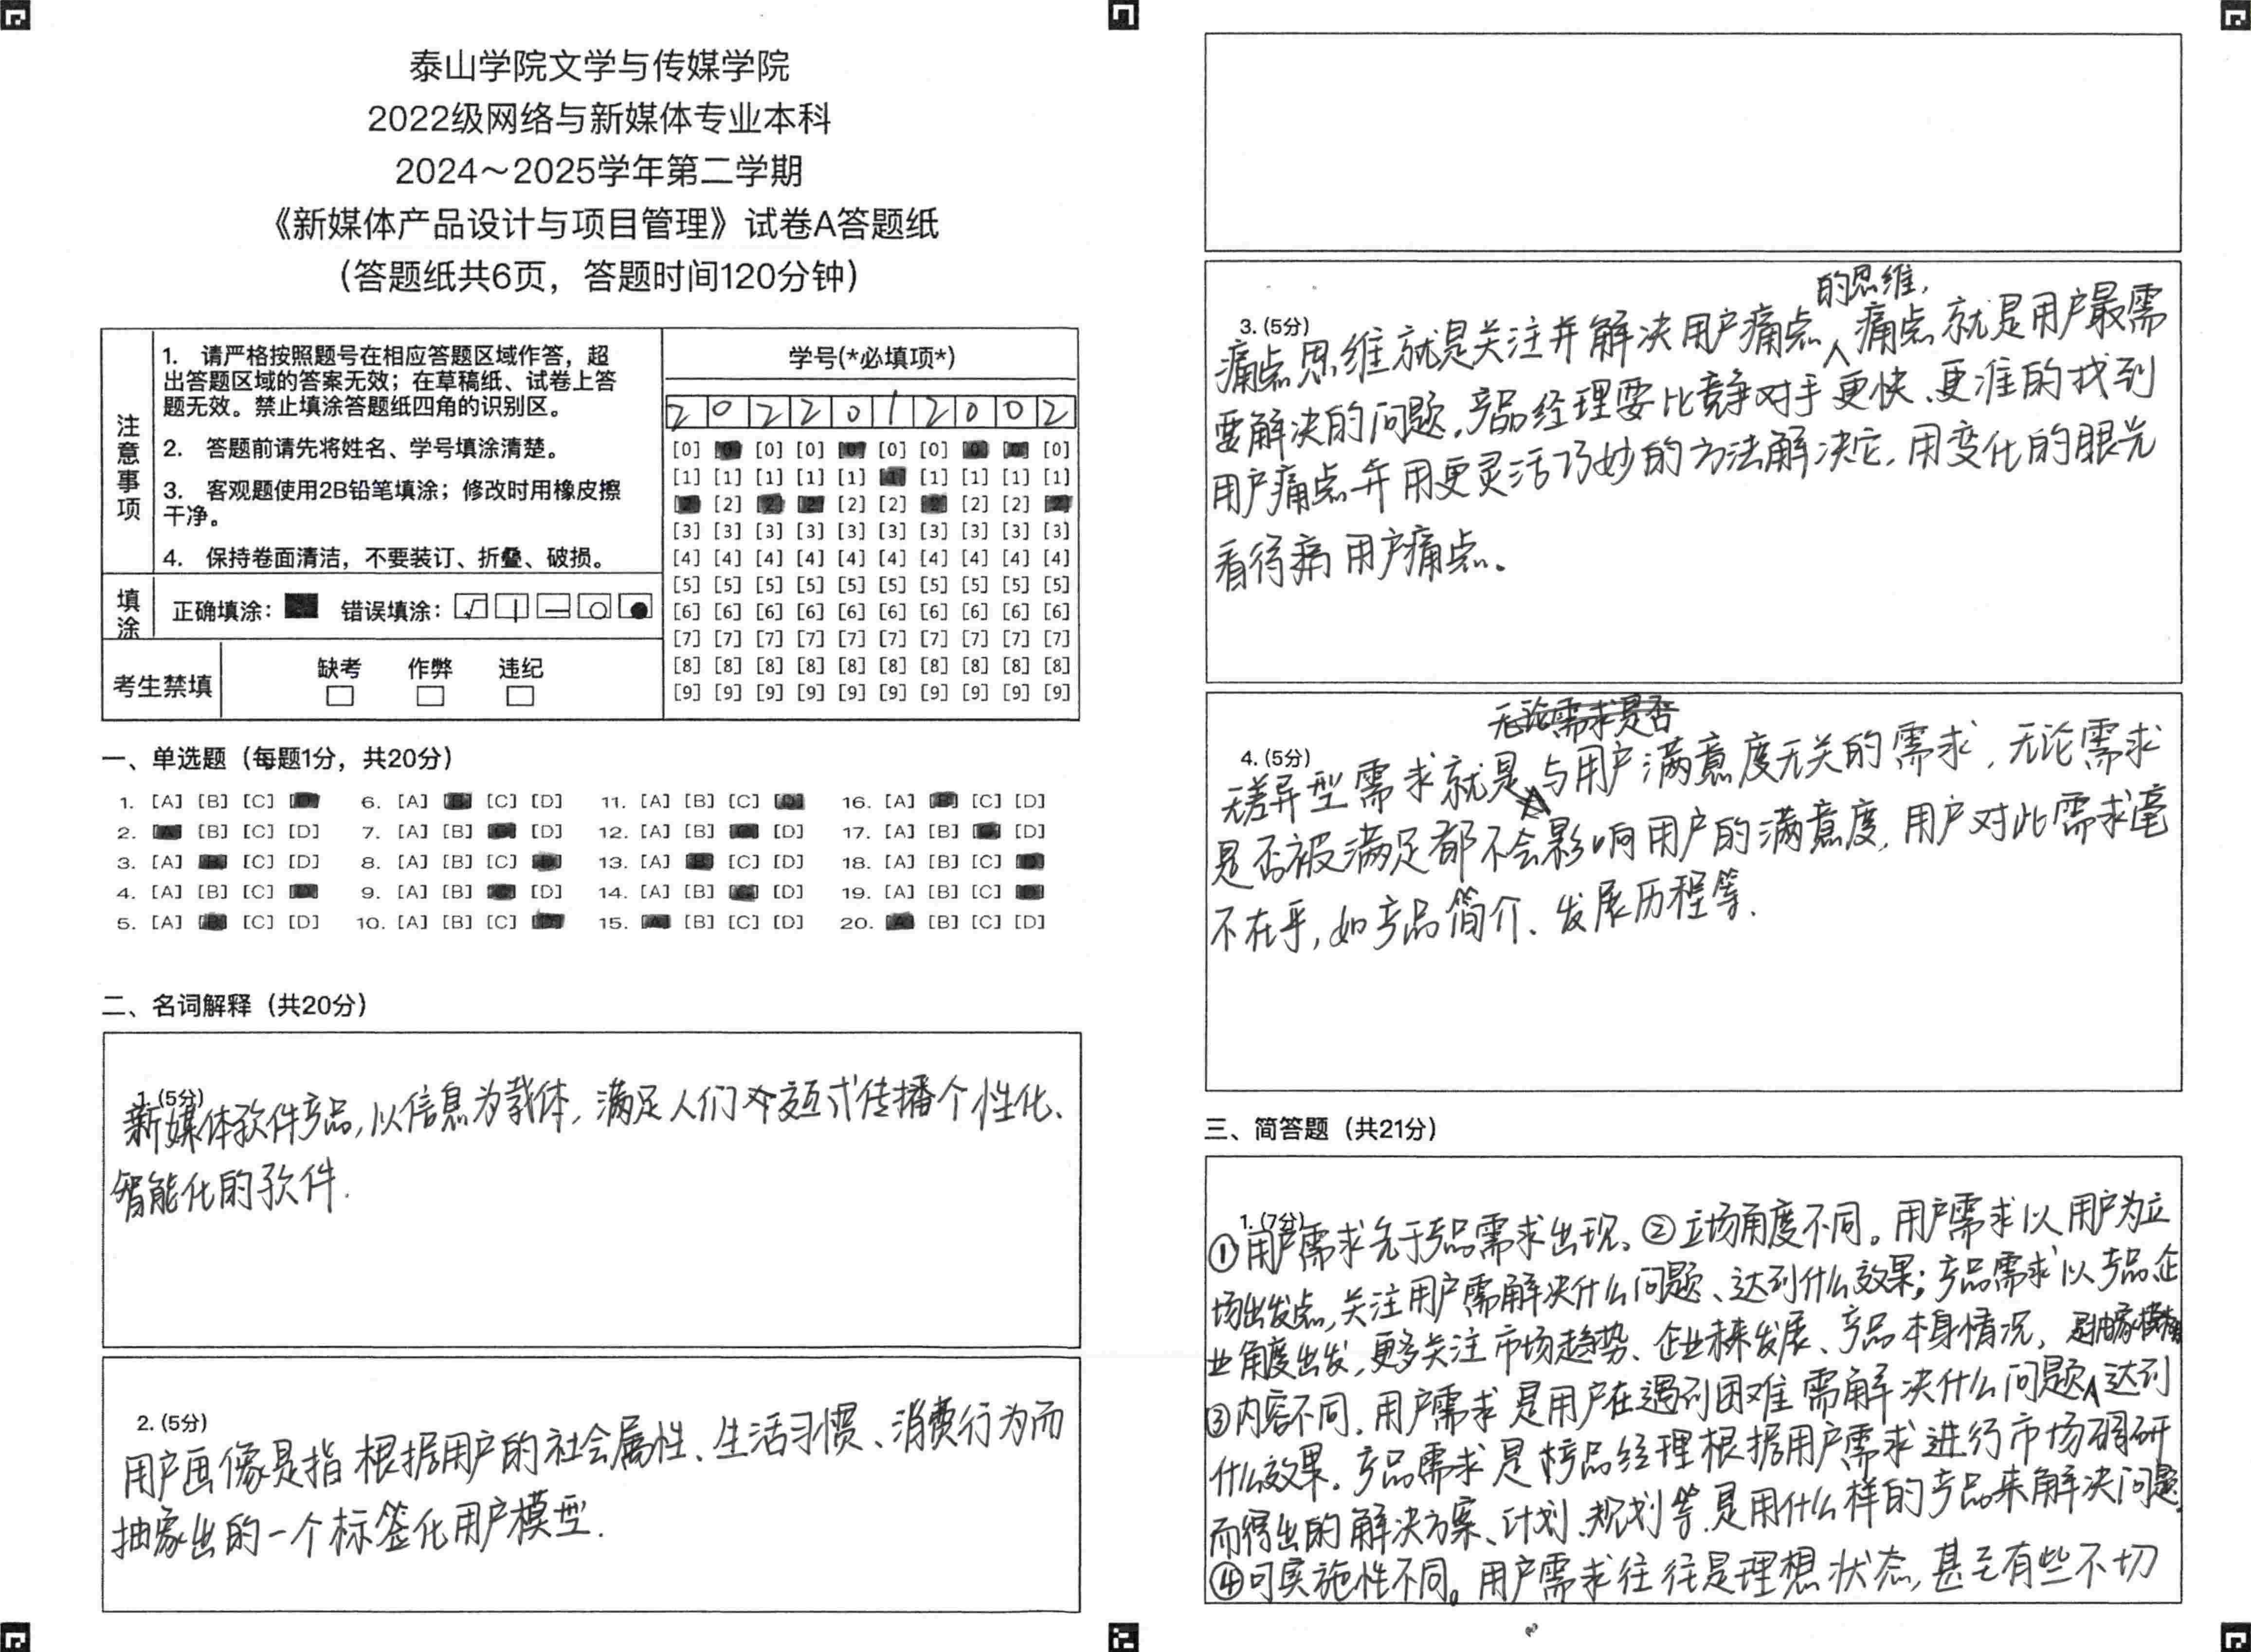 泰山学院文学与传媒学院
2022级网络与新媒体专业本科
2024～2025学年第二学期
《新媒体产品设计与项目管理》试卷A答题纸
（答题纸共6页，答题时间120分钟）
注意事项
1. 请严格按照题号在相应答题区域作答，超
出答题区域的答案无效；在草稿纸、试卷上答
题无效。禁止填涂答题纸四角的识别区。
2. 答题前请先将姓名、学号填涂清楚。
3. 客观题使用2B铅笔填涂；修改时用橡皮擦
干净。
4. 保持卷面清洁，不要装订、折叠、破损。
填涂
正确填涂： 错误填涂：
考生禁填
缺考 作弊 违纪
学号(*必填项*)
2 0 2 2 0 1 2 0 0 2
[0] [0] [0] [0] [0] [0] [0] [0] [0] [0]
[1] [1] [1] [1] [1] [1] [1] [1] [1] [1]
[2] [2] [2] [2] [2] [2] [2] [2] [2] [2]
[3] [3] [3] [3] [3] [3] [3] [3] [3] [3]
[4] [4] [4] [4] [4] [4] [4] [4] [4] [4]
[5] [5] [5] [5] [5] [5] [5] [5] [5] [5]
[6] [6] [6] [6] [6] [6] [6] [6] [6] [6]
[7] [7] [7] [7] [7] [7] [7] [7] [7] [7]
[8] [8] [8] [8] [8] [8] [8] [8] [8] [8]
[9] [9] [9] [9] [9] [9] [9] [9] [9] [9]
一、单选题（每题1分，共20分）
1. [A] [B] [C] [D] 6. [A] [B] [C] [D] 11. [A] [B] [C] [D] 16. [A] [B] [C] [D]
2. [A] [B] [C] [D] 7. [A] [B] [C] [D] 12. [A] [B] [C] [D] 17. [A] [B] [C] [D]
3. [A] [B] [C] [D] 8. [A] [B] [C] [D] 13. [A] [B] [C] [D] 18. [A] [B] [C] [D]
4. [A] [B] [C] [D] 9. [A] [B] [C] [D] 14. [A] [B] [C] [D] 19. [A] [B] [C] [D]
5. [A] [B] [C] [D] 10. [A] [B] [C] [D] 15. [A] [B] [C] [D] 20. [A] [B] [C] [D]
二、名词解释（共20分）
1. (5分)
新媒体软件产品，以信息为载体，满足人们交互式传播个性化、
智能化的软件.
2. (5分)
用户画像是指根据用户的社会属性、生活习惯、消费行为而
抽象出的一个标签化用户模型.
3. (5分)
痛点思维就是关注并解决用户痛点的思维，痛点就是用户最需
要解决的问题。产品经理要比竞争对手更快、更准的找到
用户痛点并用更灵活巧妙的方法解决它，用变化的眼光
看待用户痛点。
4. (5分)
无差异型需求就是与用户满意度无关的需求，无论需求
是否被满足都不会影响用户的满意度，用户对此需求毫
不在乎，如产品简介、发展历程等.
三、简答题（共21分）
1. (7分)
①用户需求先于产品需求出现。②立场角度不同。用户需求以用户为立
场出发点，关注用户需解决什么问题、达到什么效果；产品需求以产品、企
业角度出发，更多关注市场趋势、企业未来发展、产品本身情况，
③内容不同，用户需求是用户在遇到困难需解决什么问题、达到
什么效果。产品需求是产品经理根据用户需求进行市场调研
而得出的解决方案、计划、规划等，是用什么样的产品来解决问题。
④可实施性不同。用户需求往往是理想状态，甚至有些不切